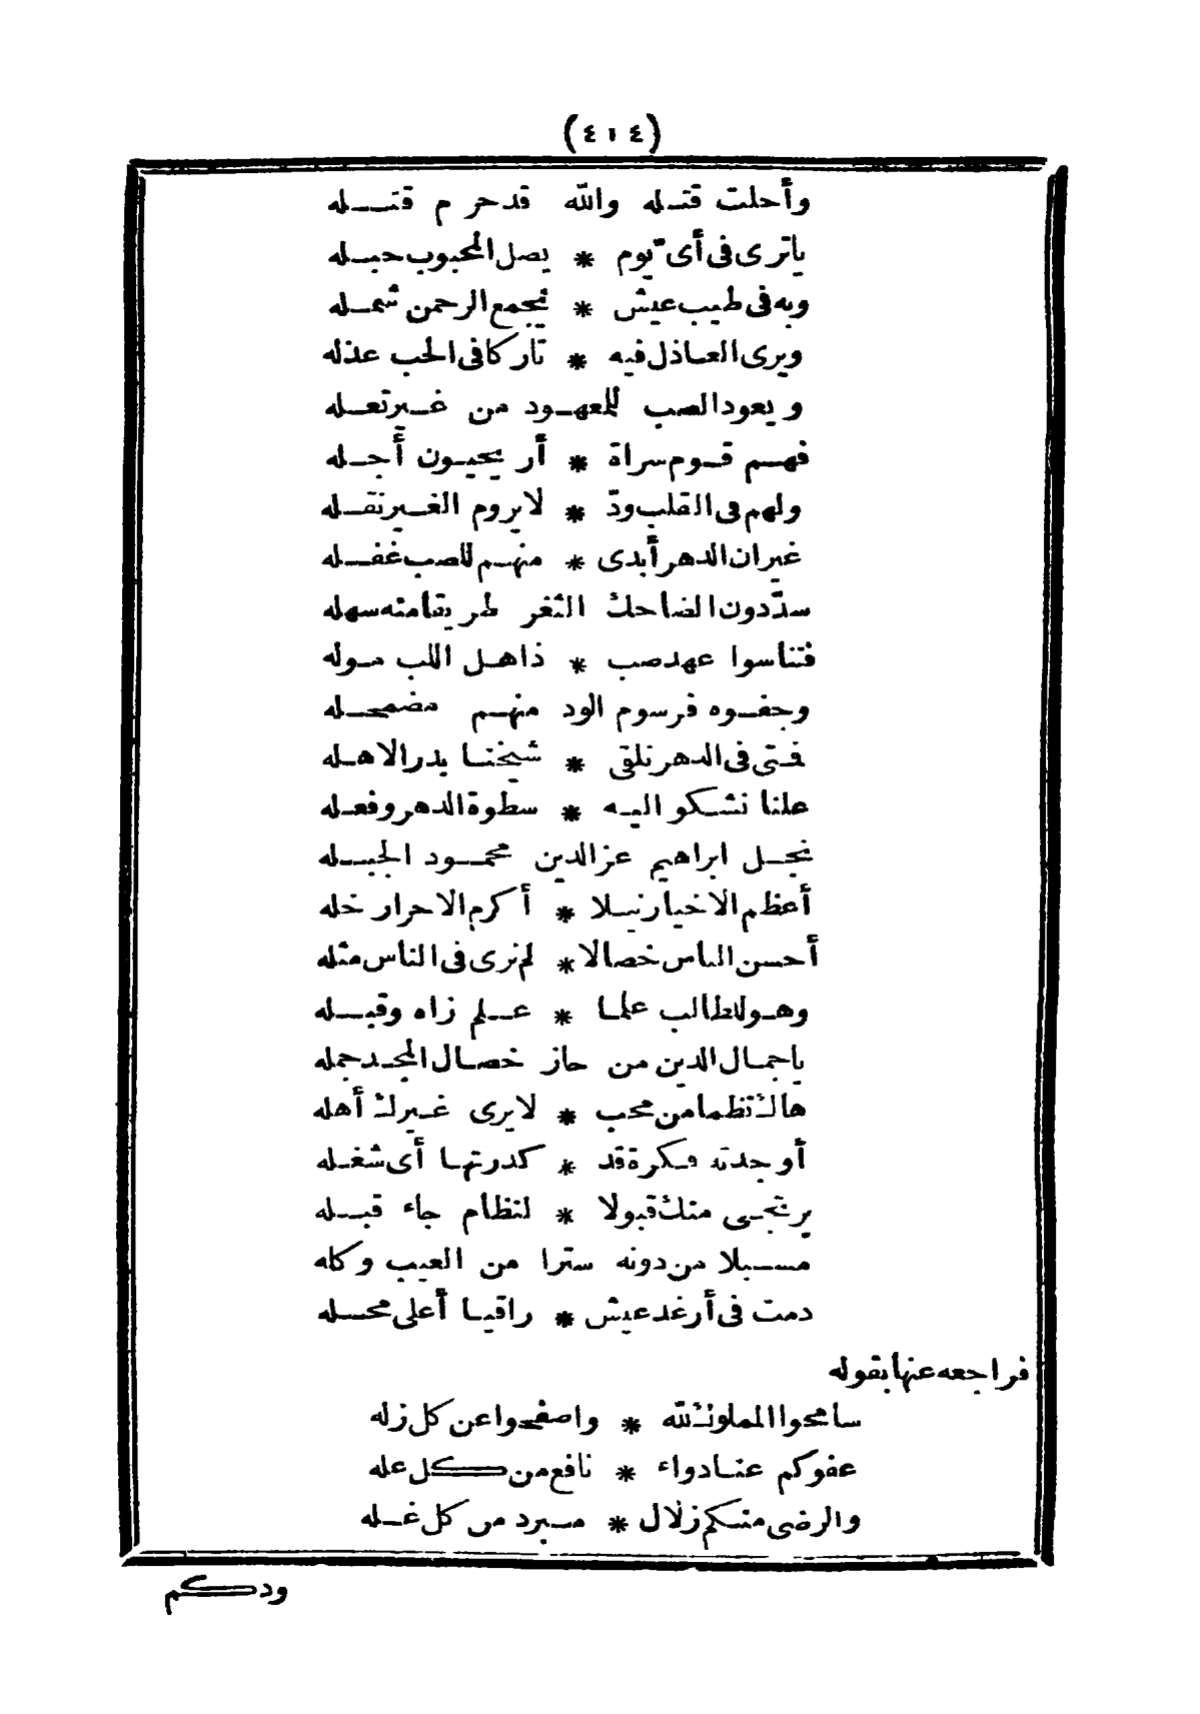 (٤١٤)
وأحلت قتله والله قد حرم قتله
ياترى فى أى يوم * يصل المحبوب حبله
وبه فى طيب عيش * يجمع الرحمن شمله
ويرى العاذل فيه * تاركا فى الحب عذله
ويعود الصب للمعهود من غير تعله
فهم قوم سراة * أريحيون أجله
ولهم فى القلب ودّ * لايروم الغير نقله
غير ان الدهر أبدى * منهم للصب غفله
سدّ دون الضاحك الثغر طريقا منه سهله
فتناسوا عهد صب * ذاهل اللب موله
وجفوه فرسوم الود منهم مضمحله
فتى فى الدهر نلقى * شيخنا بدر الاهله
علنا نشكو اليه * سطوة الدهر وفعله
نجل ابراهيم عز الدين محمود الجبله
أعظم الاخيار نيلا * أكرم الاحرار خله
أحسن الناس خصالا * لم نرى فى الناس مثله
وهو للطالب علما * علم زاه وقبله
ياجمال الدين من حاز خصال المجد جمله
هاك نظما من محب * لايرى غيرك أهله
أوجدته فكرة قد * كدرتها أى شغله
يرتجى منك قبولا * لنظام جاء قبله
مسبلا من دونه سترا من العيب وكله
دمت فى أرغد عيش * راقيا أعلى محله
فراجعه عنها بقوله
سامحوا المملوك لله * واصفحوا عن كل زله
عفوكم عنا دواء * نافع من كل عله
والرضى منكم زلال * مبرد من كل غله
ودكم